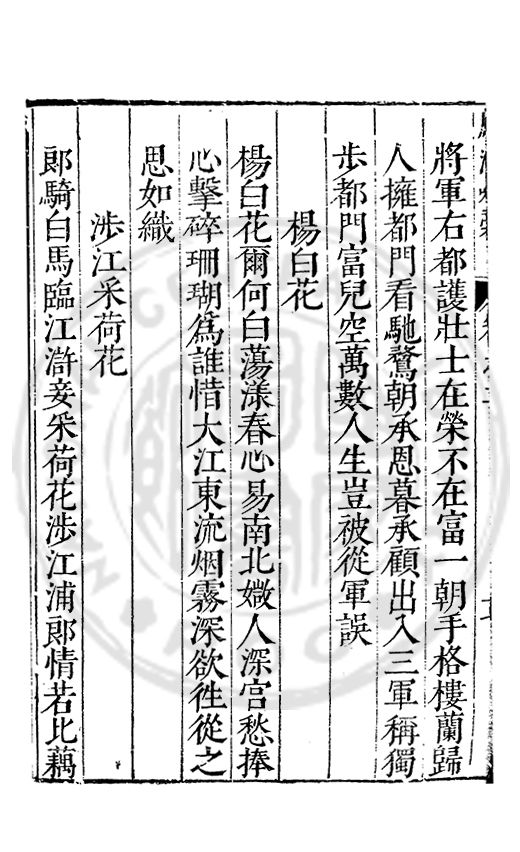 將軍右都護壯士在榮不在富一朝手格樓蘭歸
人擁都門看馳騖朝承恩暮承顧出入三軍稱獨
步都門富兒空萬數人生豈被從軍誤
楊白花
楊白花爾何白蕩漾春心易南北媺人深宮愁捧
心擊碎珊瑚爲誰惜大江東流烟霧深欲徃從之
思如織
涉江采荷花
郎騎白馬臨江滸妾采荷花涉江浦郎情若比藕